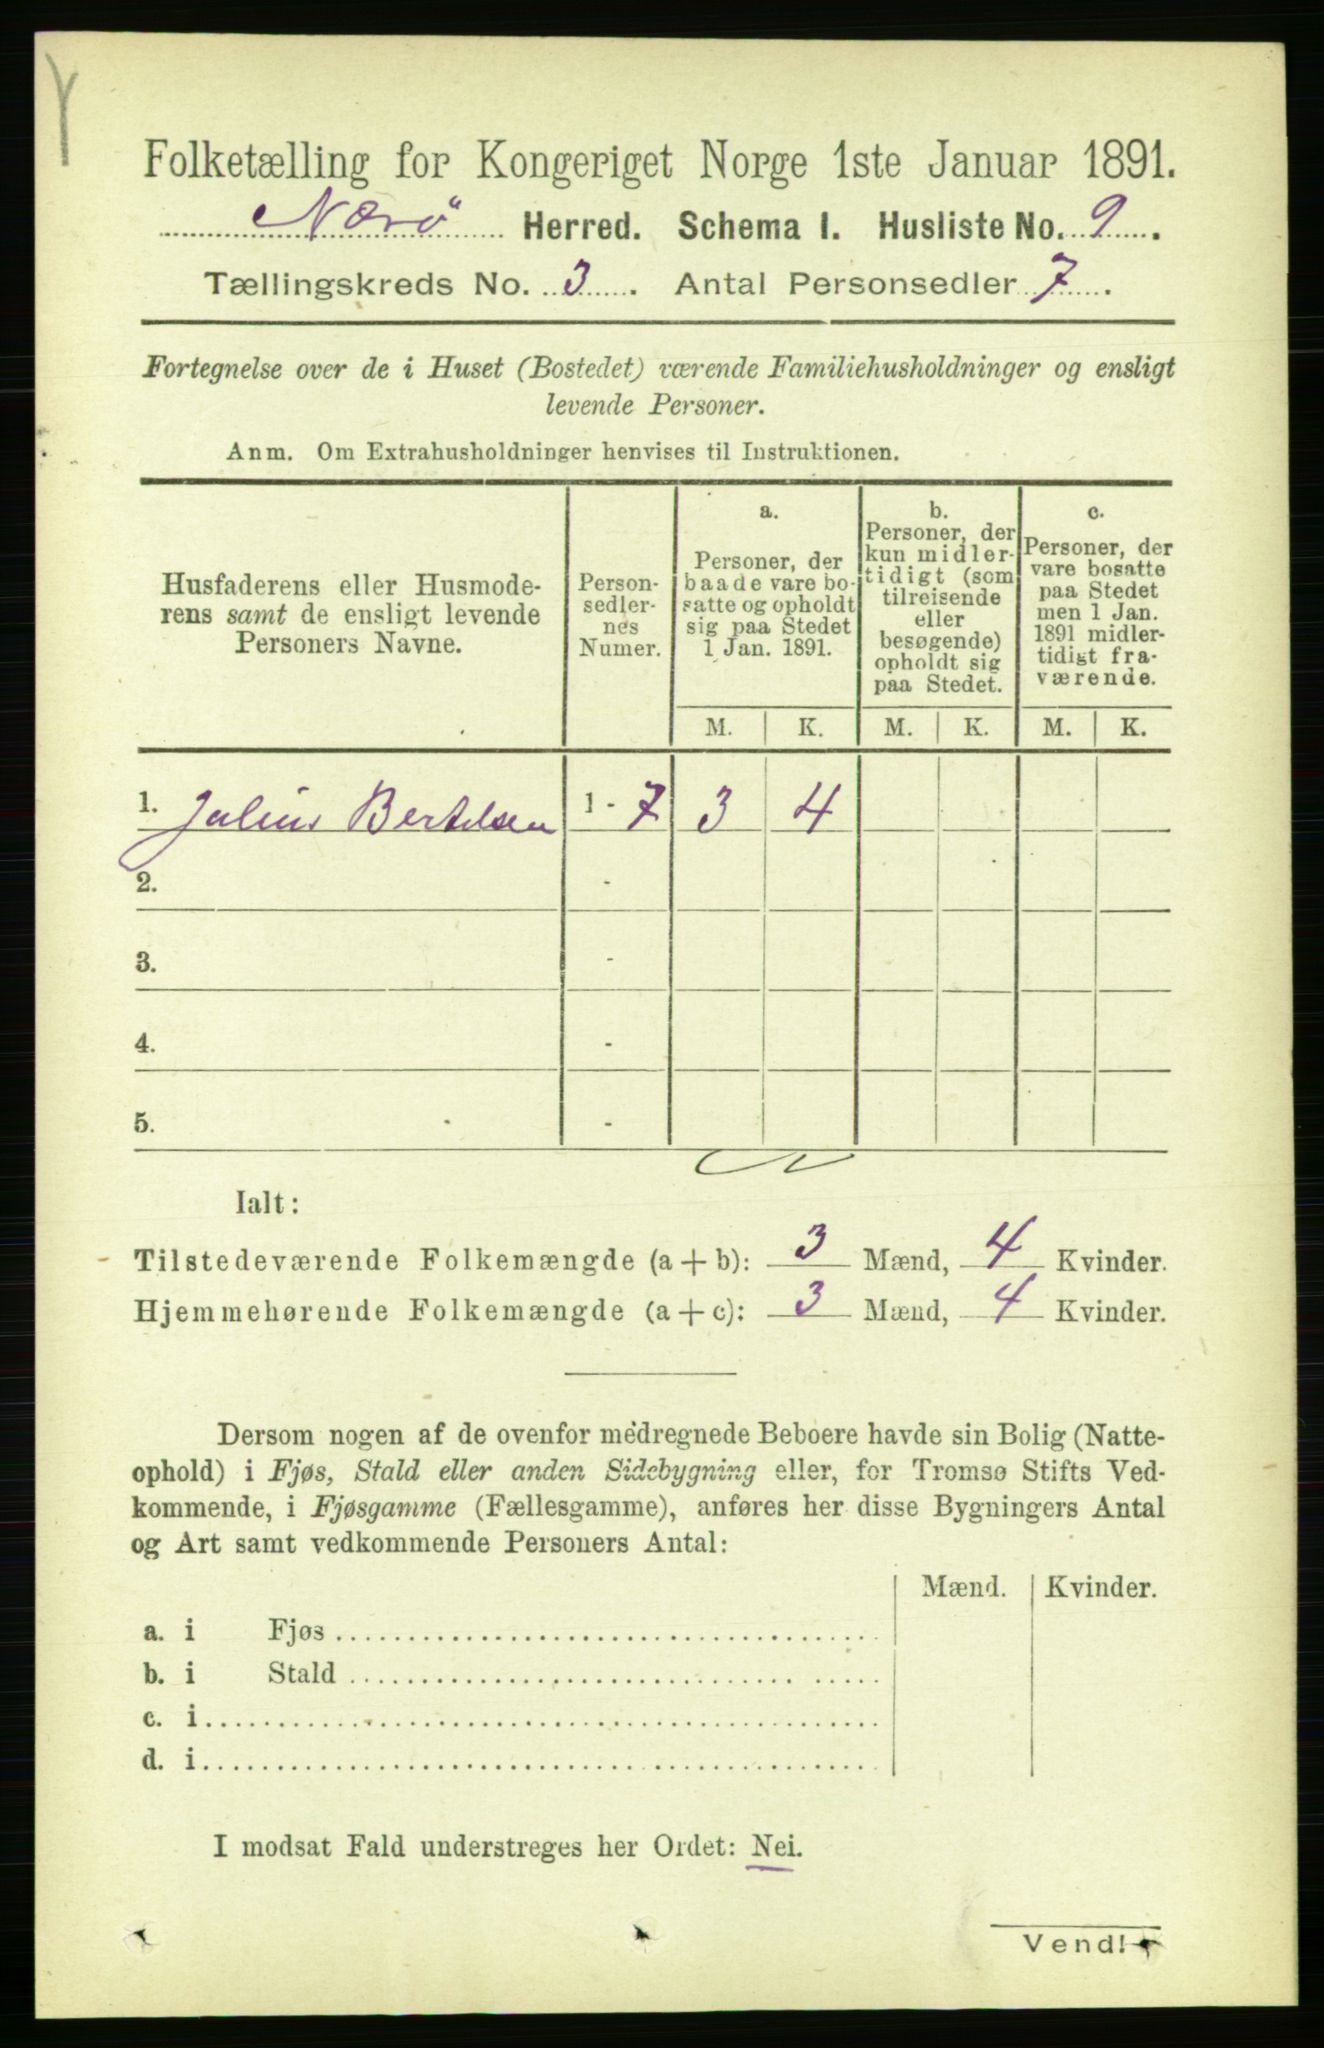 Folketælling for Kongeriget Norge 1ste Januar 1891.
Nærö Herred. Schema 1. Husliste No. 9.
Tællingskreds No. 3. Antal Personsedler 7.
Fortegnelse over de i Huset (Bostedet) værende Familiehusholdninger og ensligt
levende Personer.
Anm. Om Extrahusholdninger henvises til Instruktionen.
Husfaderens eller Husmode-
rens samt de ensligt levende
Personers Navne.
Person-
sedler-
nes
Numer.
a.
Personer, der
baade vare bo-
satte og opholdt
sig paa Stedet
1 Jan. 1891.
b.
Personer, der
kun midler-
tidigt (som
tilreisende
eller
besøgende)
opholdt sig
paa Stedet.
c.
Personer, der
vare bosatte
paa Stedet
men 1 Jan.
1891 midler-
tidigt fra-
værende.
M. K. M. K. M. K.
1. Julius Bertelsen 1 - 7 3 4
2. -
3. -
4. -
5. -
Ialt:
Tilstedeværende Folkemængde (a + b): 3 Mænd, 4 Kvinder.
Hjemmehørende Folkemængde (a + c): 3 Mænd, 4 Kvinder.
Dersom nogen af de ovenfor medregnede Beboere havde sin Bolig (Natte-
ophold) i Fjøs, Stald eller anden Sidebygning eller, for Tromsø Stifts Ved-
kommende, i Fjøsgamme (Fællesgamme), anføres her disse Bygningers Antal
og Art samt vedkommende Personers Antal:
Mænd. Kvinder.
a. i Fjøs
b. i Stald
c. i
d. i
I modsat Fald understreges her Ordet: Nei.
Vend!